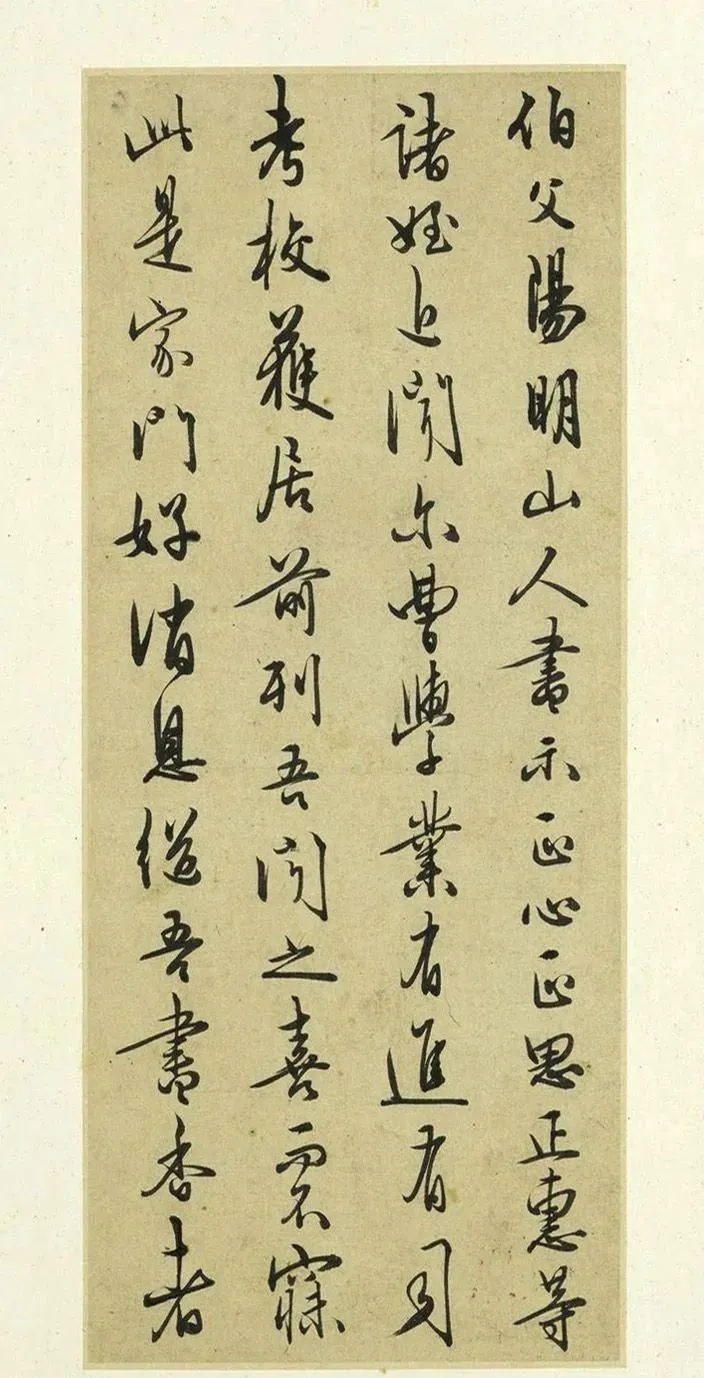 伯父陽明山人書示正心正思正惠等
諸姪近聞尔曹學業有進有司
考校獲居前列吾聞之喜而不寐
此是家門好消息繼吾書香者